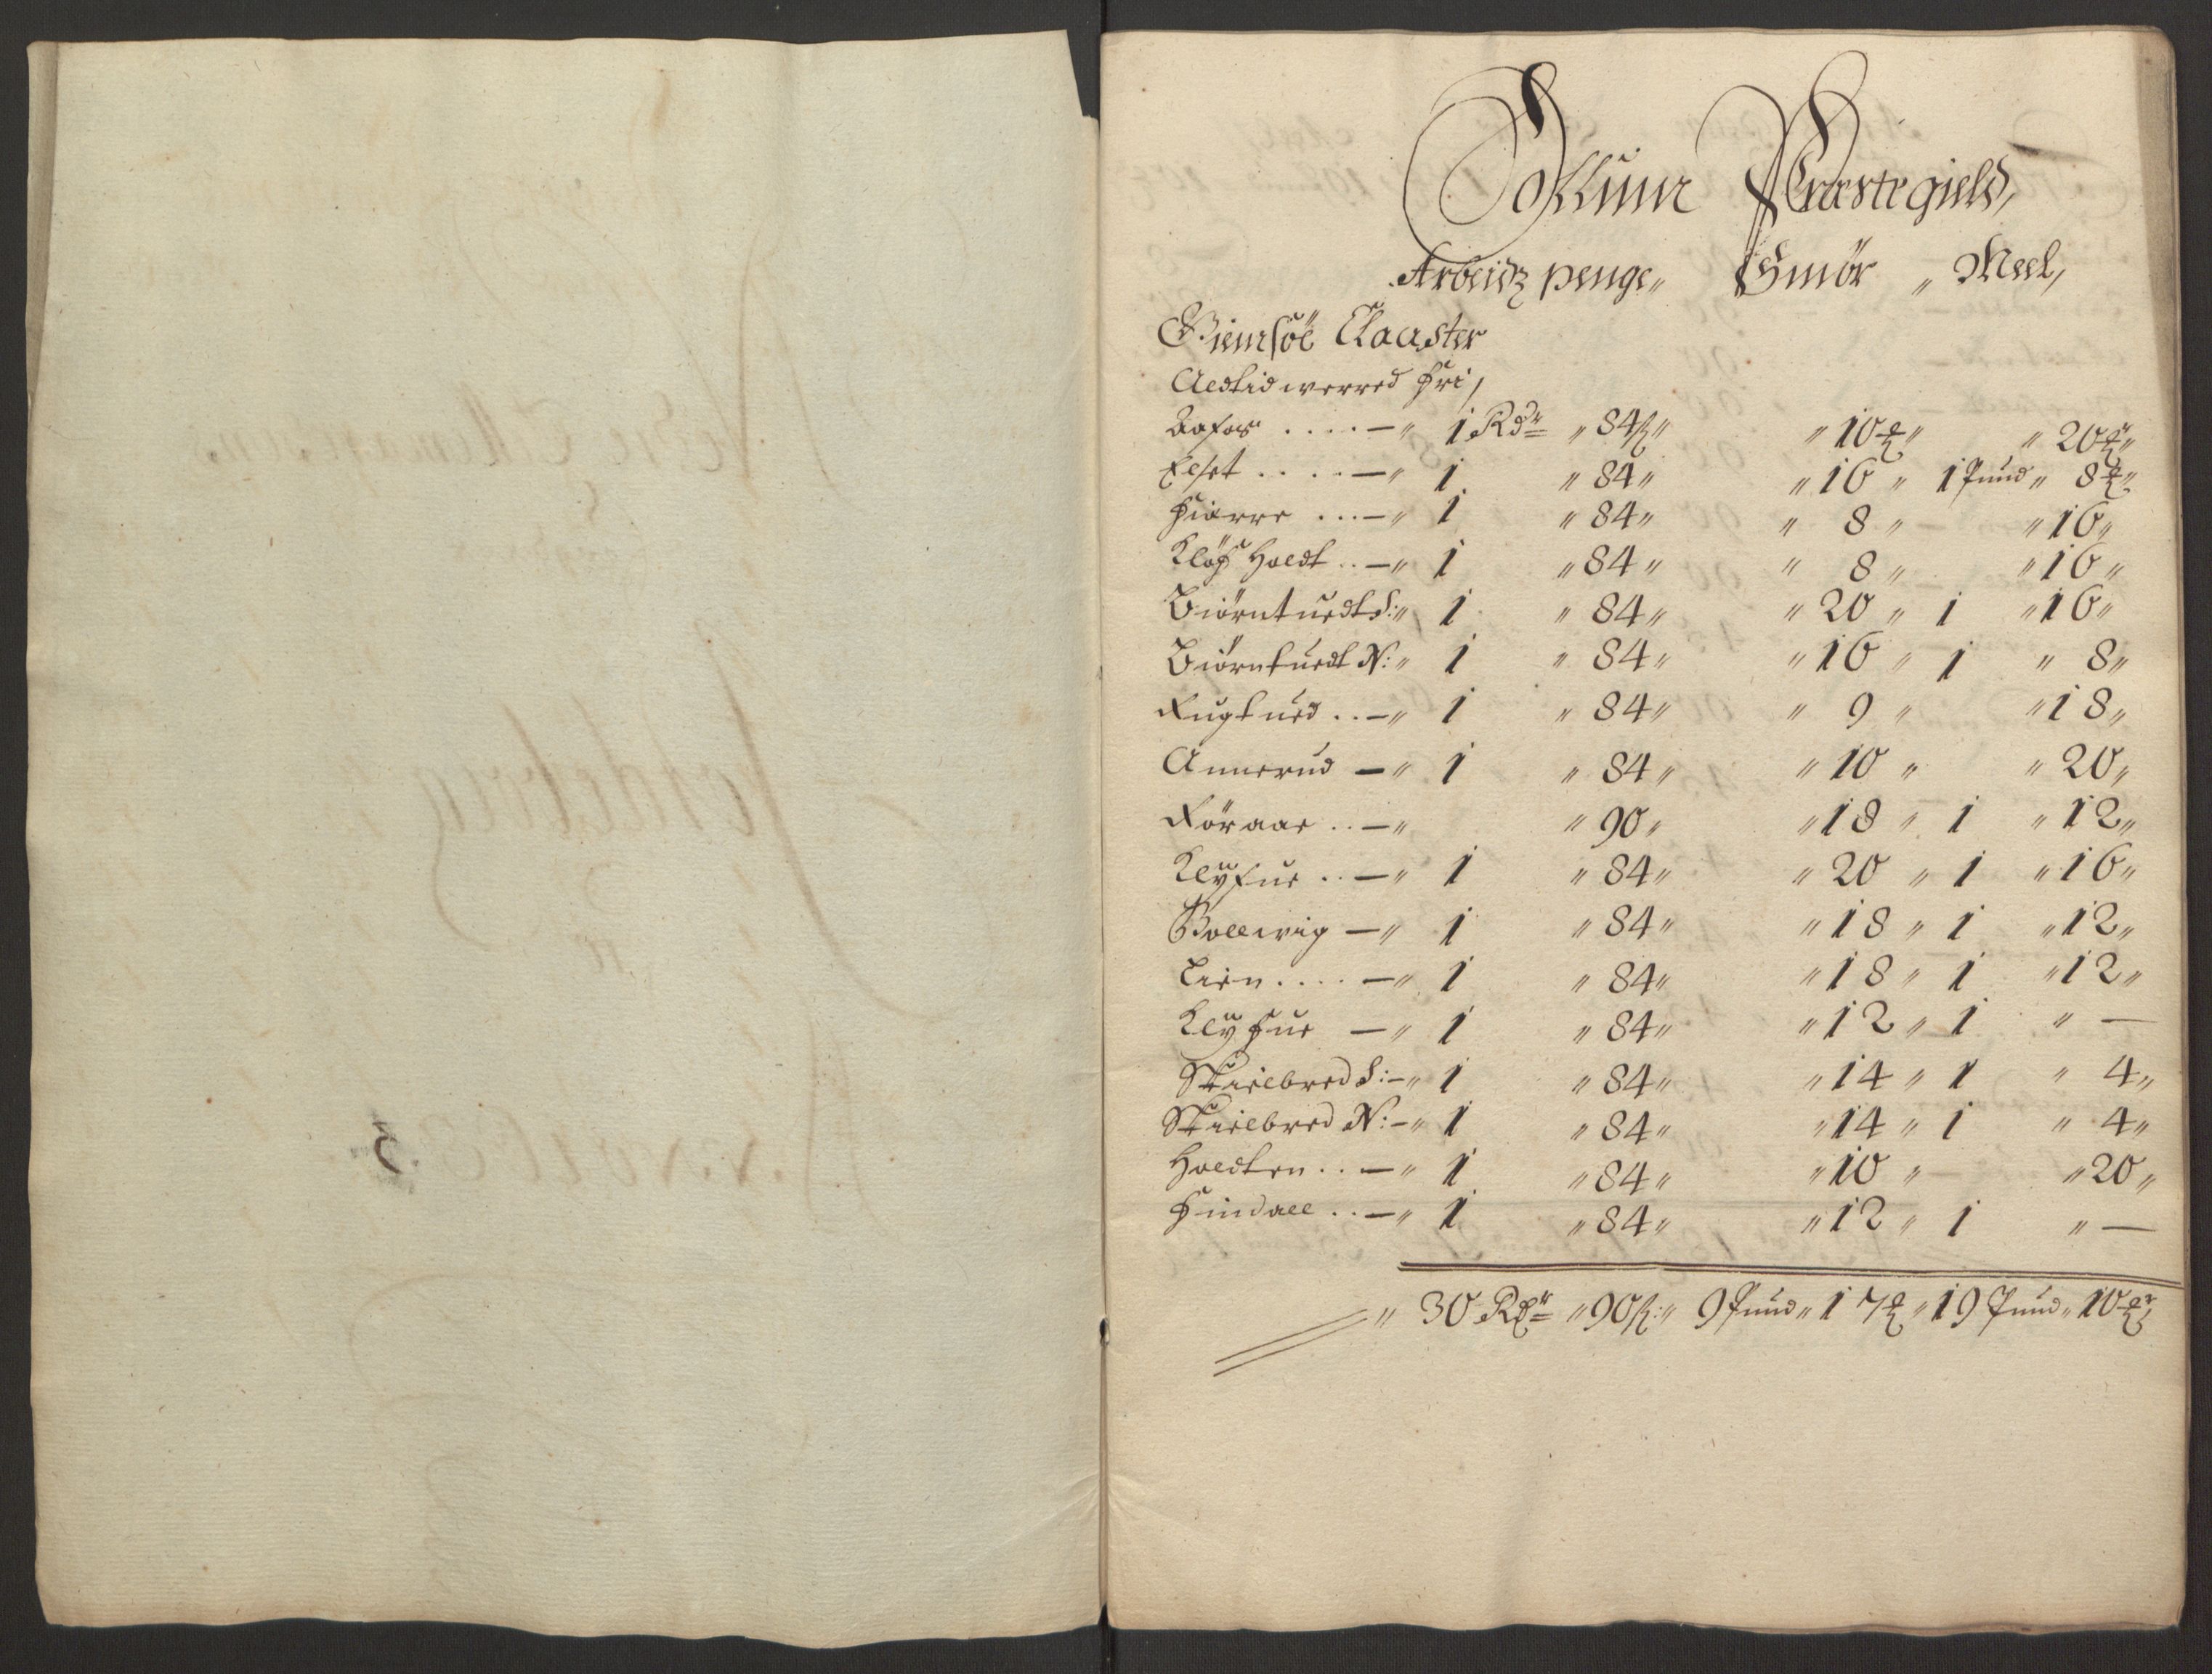 Sollum Præstegield,
Arbeidz penge „ Smör „ Meel,
Giemsöe Claaster
Aeltid werred fri,
Aafos .... — „ 1 Rdr „ 84 ß „ „ 10 ℔ „ „ 20 ℔ „
Elset .... — „ 1 „ 84 „ „ 16 „ 1 Pund „ 8 ℔ „
Fiære ... — „ 1 „ 84 „ „ 8 „ „ 16 „
Klöfholdt .. — „ 1 „ 84 „ „ 8 „ „ 16 „
Biörntuedt S: „ 1 „ 84 „ „ 20 „ 1 „ 16 „
Biörntuedt N: „ 1 „ 84 „ „ 16 „ 1 „ 8 „
Rugtued .. — „ 1 „ 84 „ „ 9 „ „ 18 „
Annerud — „ 1 „ 84 „ „ 10 „ „ 20 „
Röraae .. — „ „ 90 „ „ 18 „ 1 „ 12 „
Klÿfue .. — „ 1 „ 84 „ „ 20 „ 1 „ 16 „
Bollwig — „ 1 „ 84 „ „ 18 „ 1 „ 12 „
Lien .... — „ 1 „ 84 „ „ 18 „ 1 „ 12 „
Klÿfue — „ 1 „ 84 „ „ 12 „ 1 „ —
Skielbred S: — „ 1 „ 84 „ „ 14 „ 1 „ 4 „
Skielbred N: — „ 1 „ 84 „ „ 14 „ 1 „ 4 „
Holdten .. — „ 1 „ 84 „ „ 10 „ „ 20 „
Findall .. — „ 1 „ 84 „ „ 12 „ 1 „ —
„ 30 Rdr „ 90 ß: „ 9 Pund „ 17 ℔ „ 19 Pund „ 10 ℔